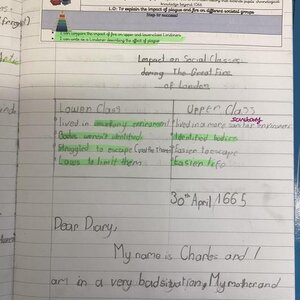 knowledge beyond 1066
L.O: To explain the impact of plague and fire on different societal groups
Step to success
I can compare the impact of fire on upper and lowerclass Londoners
I can write as a Londoner describing the effect of plague
Impact on Social Classes
during The Great Fire
of London
Lower Class
Upper Class
lived in unsanitary enviroment
lived in a more sanitary enviroment
sanitary
Bodies weren't identified
Identified bodies
Struggled to escape
Easier to escape
Laws to limit them
Easier life
30th April, 1665
Dear Diary,
My name is Charles and I
am in a very bad situation, My mother and